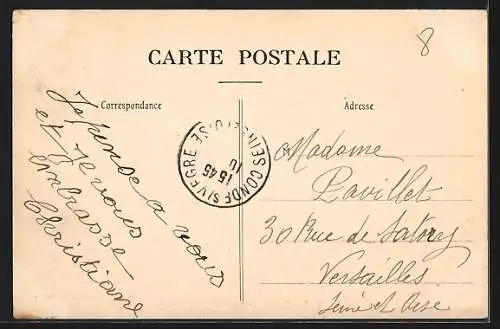 8
CARTE POSTALE
Correspondance
Adresse
Je pense a vous
et je vous
embrasse
Christiane
CONDE S/VEGRE SEINE ET OISE
1545
10
Madame
Pavillet
30 Rue de Satory
Versailles
Seine et Oise